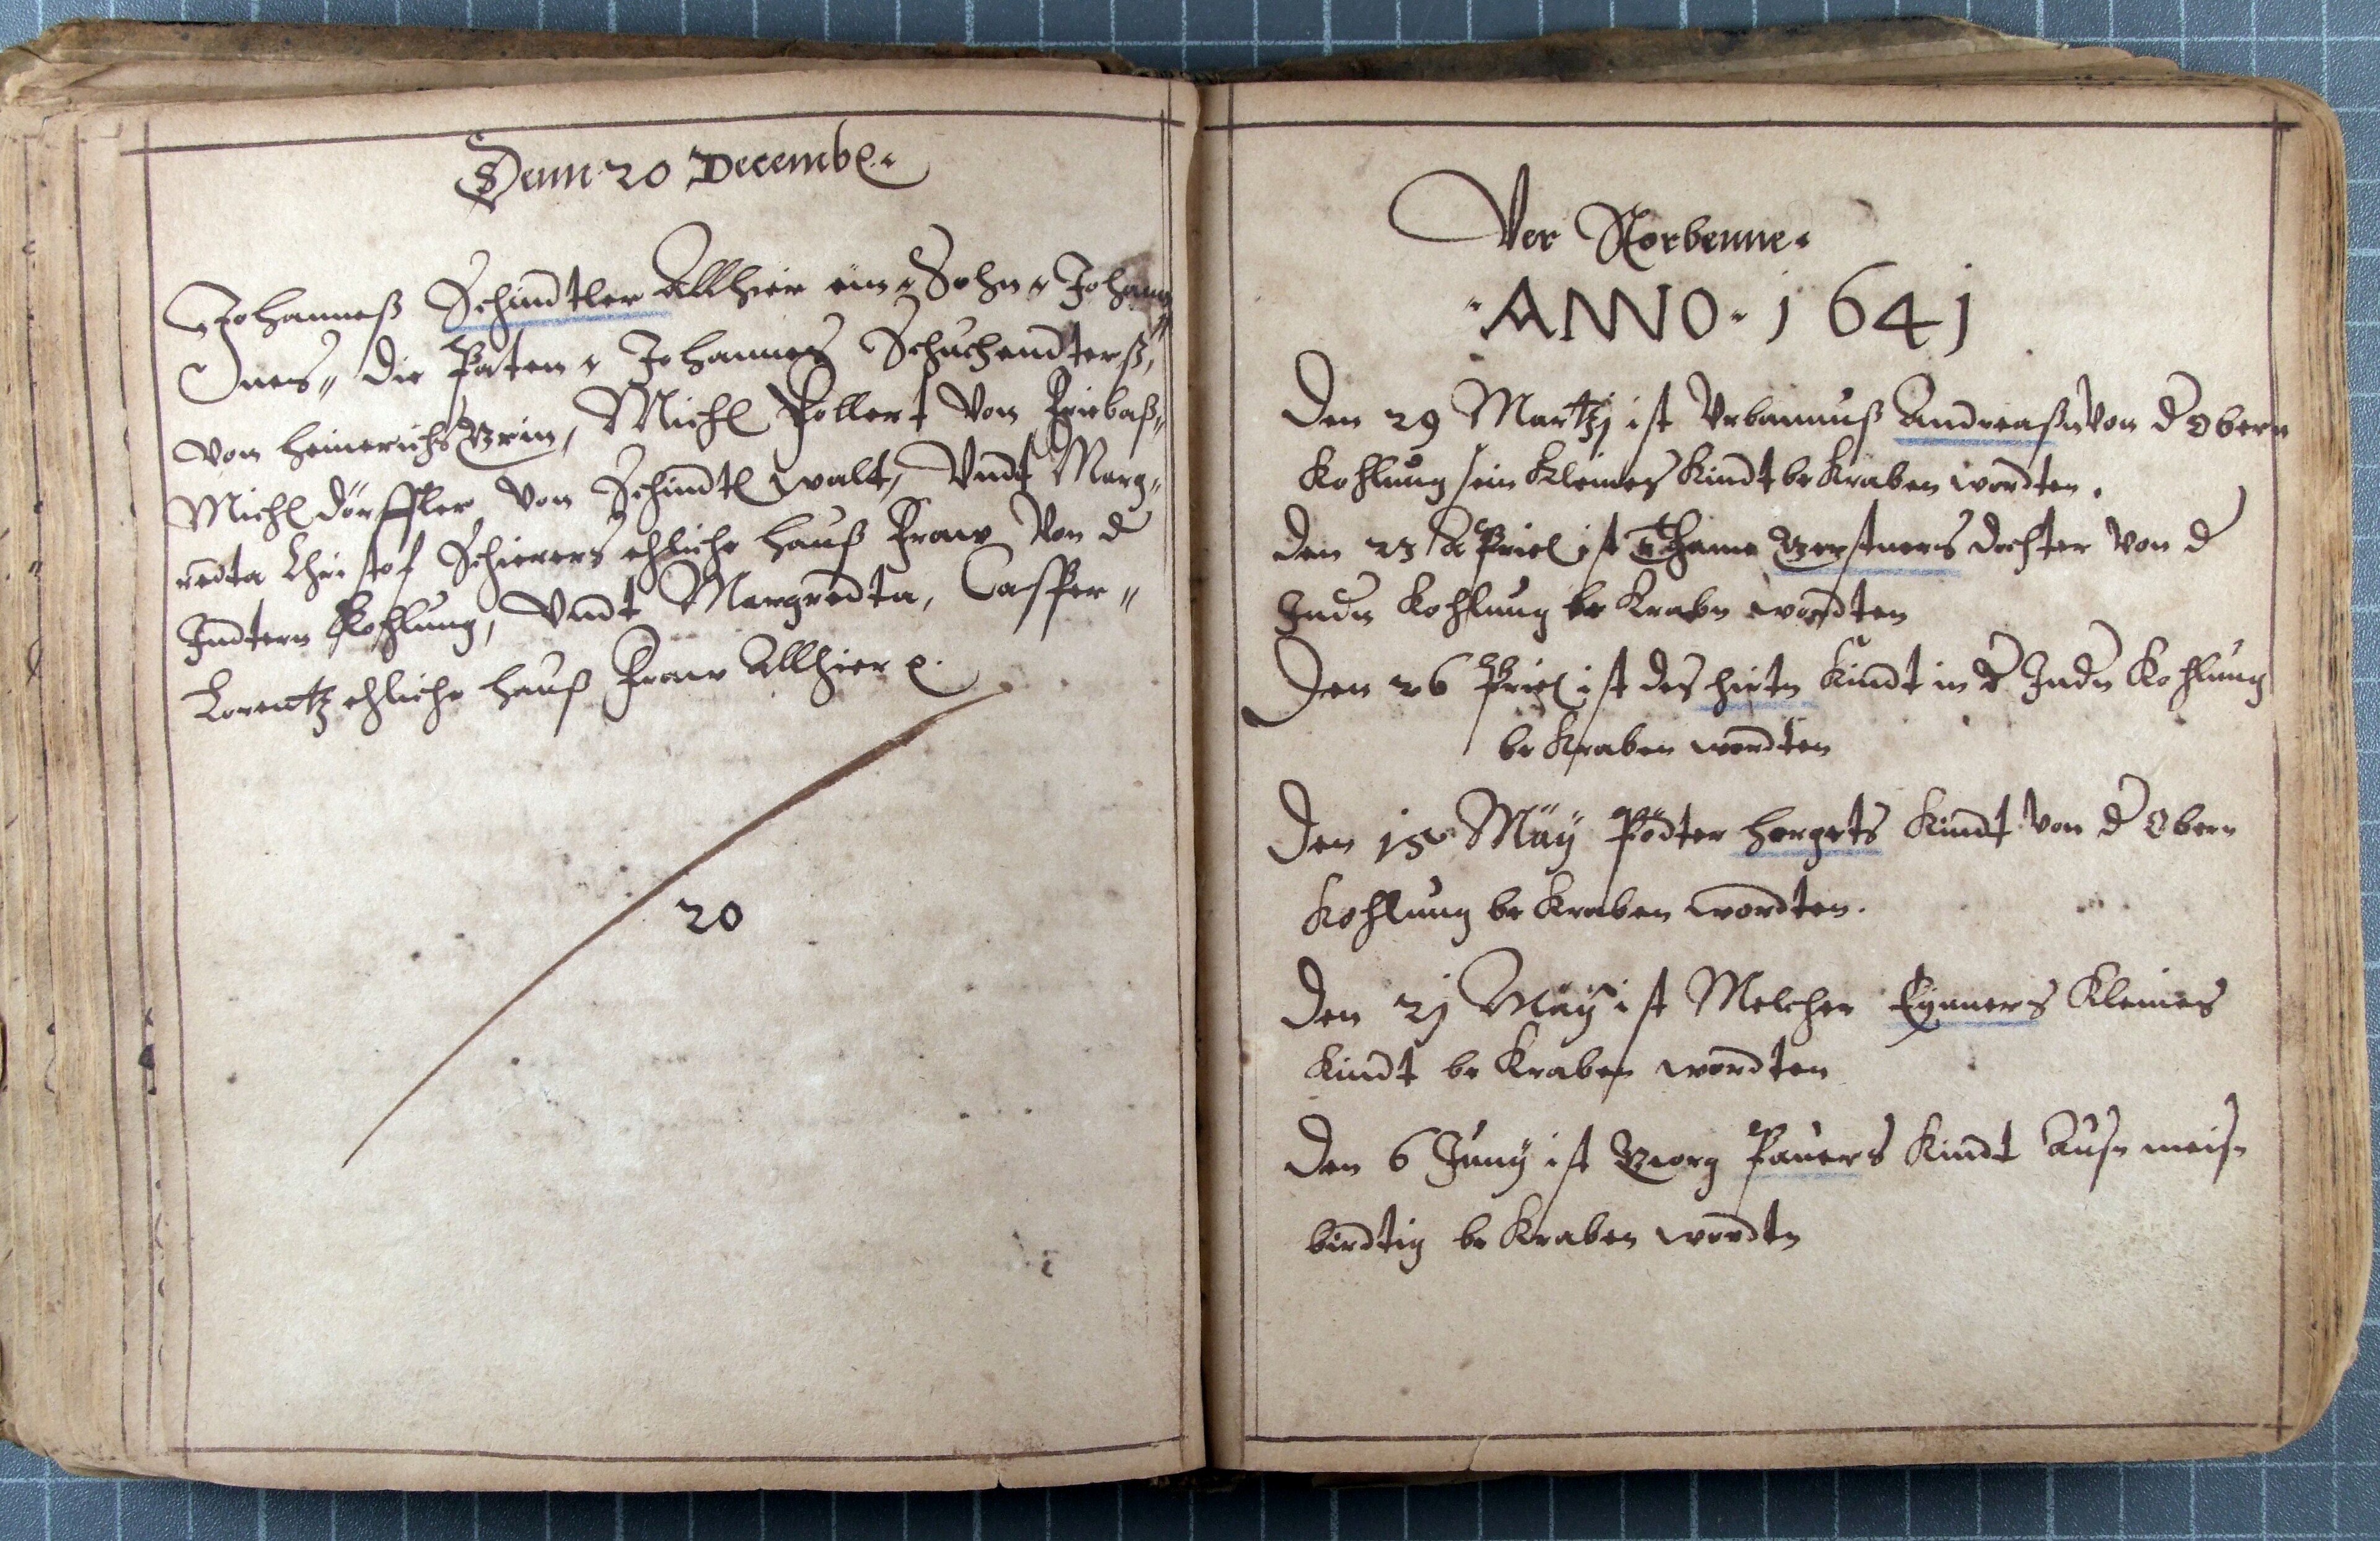 Denn 20 Decemb:
Johanneß Schindtler Allhier ein Sohn Johann
nes, die Paten, Johannes Schuchendterß,
von Heinerichs Grin, Michl Pollert von Friebaß,
Michl Dörffler von Schindtl walt, Vndt Marg,,
redta Christof Schierers ehliche Hauß Fraw von d
Indtern Kohlung, Vndt Margredta, Casper,,
Lorentz ehliche Hauß Fraw Allhier
20
Ver Storbenne.
ANNO 1641
Den 29 Martzj ist Vrbannuß Andreaßn Von d Obern
Kohlung sein Kleines Kindt be Kraben wordten.
den 23 APriel ist Thama Gerstners dochter Von d
Indn Kohlung be Krabn wordten
Den 26 APriel ist des hirtn Kindt in d Indn Kohlung
be Kraben wordten
Den 18 Maÿ Pödter hergets Kindt Von d Obern
Kohlung be Kraben wordten.
Den 21 Maÿ ist Melcher Eÿnners Kleines
Kindt be Kraben wordten
Den 6 Junÿ ist Georg Pauers Kindt Ausn meisn
birdtig be Kraben wordtn